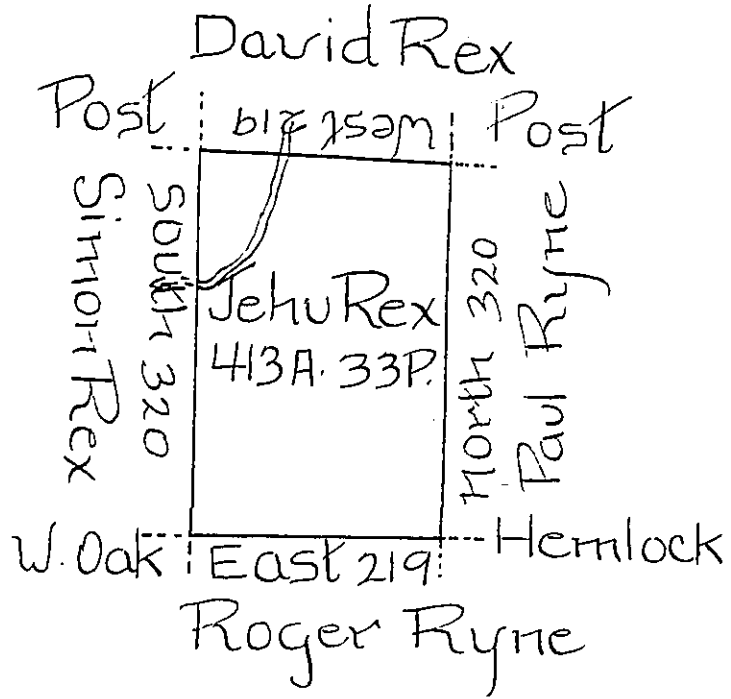 David Rex
Post
West 219
Post
Simon Rex
South 320
Jehu Rex
413A. 33P.
North 320
Paul Ryne
W. Oak
East 219
Hemlock
Roger Ryne